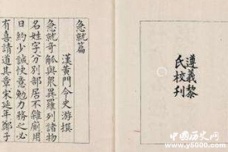 遵義黎
氏校刊
急就篇
漢黃門令史游撰
急就奇觚與衆異羅列諸物
名姓字分別部居不雜廁用
日約少誠快意勉力務之必
有喜請道其章宋延年鄭子